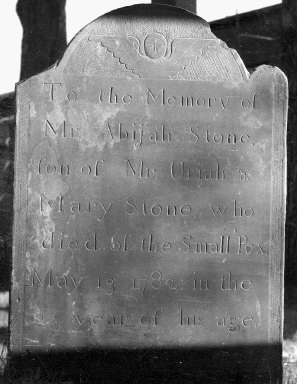 To the Memory of
Mr. Abijah Stone,
son of Mr Uriah &
Mary Stone, who
died of the Small Pox
May 13 1782; in the
year of his age.